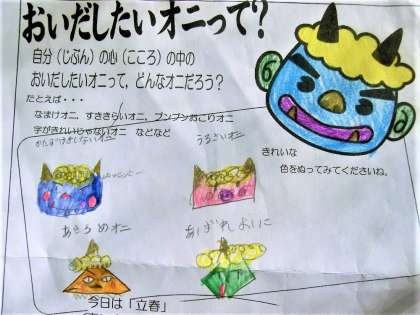 おいだしたいオニって?
自分(じぶん)の心(こころ)の中の
おいだしたいオニって、どんなオニだろう?
たとえば・・・
なまけオニ、すききらいオニ、プンプンおこりオニ
字がきれいじゃないオニ などなど
きれいな
色をぬってみてくださいね。
かたづけをしないオニ
うるさいオニ
あきらめオニ
今日は「立春」